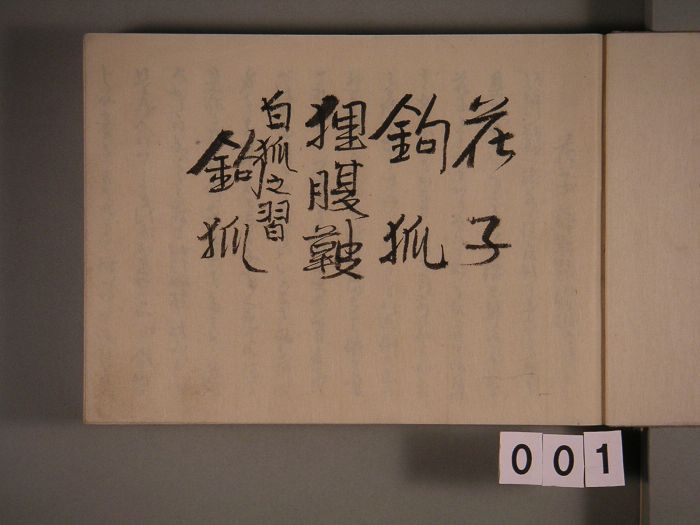 花子
釣狐
狸腹鼓
白狐之習
釣狐
001